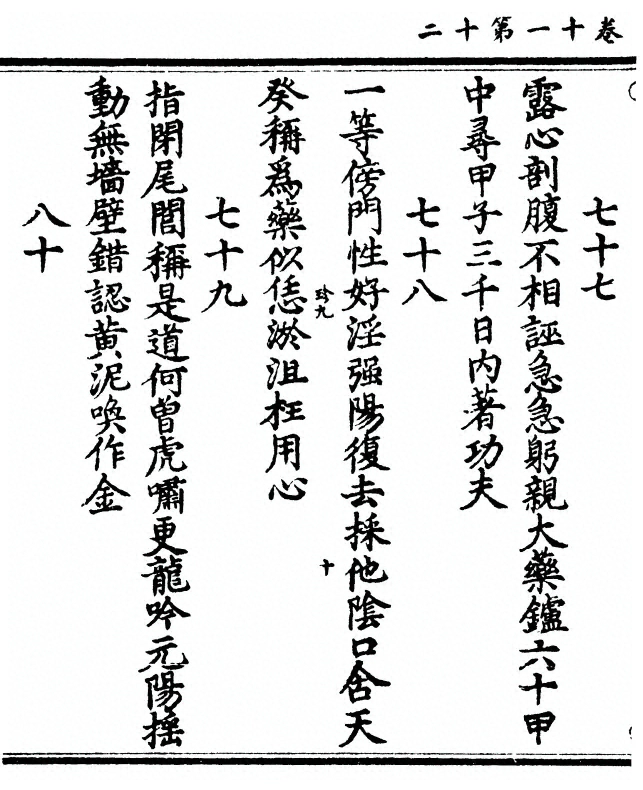 卷十一第十二
七十七
露心剖腹不相誣急急躬親大藥鑪六十甲
中尋甲子三千日內著功夫
七十八
一等傍門性好淫强陽復去採他陰口含天
癸稱爲藥似恁淤沮枉用心
珍九
十
七十九
指閉尾閭稱是道何曾虎嘯更龍吟元陽摇
動無墻壁錯認黄泥喚作金
八十